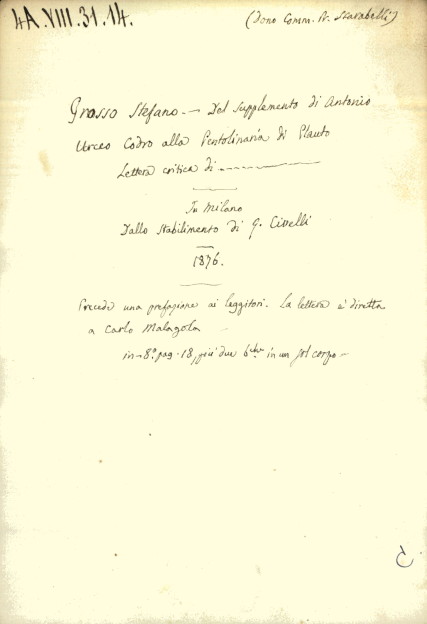 4A.VIII.31.14.
(Dono Comm. P. Scarabelli)
Grosso Stefano. — Del supplemento di Antonio
Urceo Codro alla Pentolinaria di Plauto
Lettera critica di
In Milano
Dallo Stabilimento di G. Civelli
1876.
Precede una prefazione ai leggitori. La lettera è diretta
a Carlo Malagola
in-8.° pag. 18, più due in un sol corpo